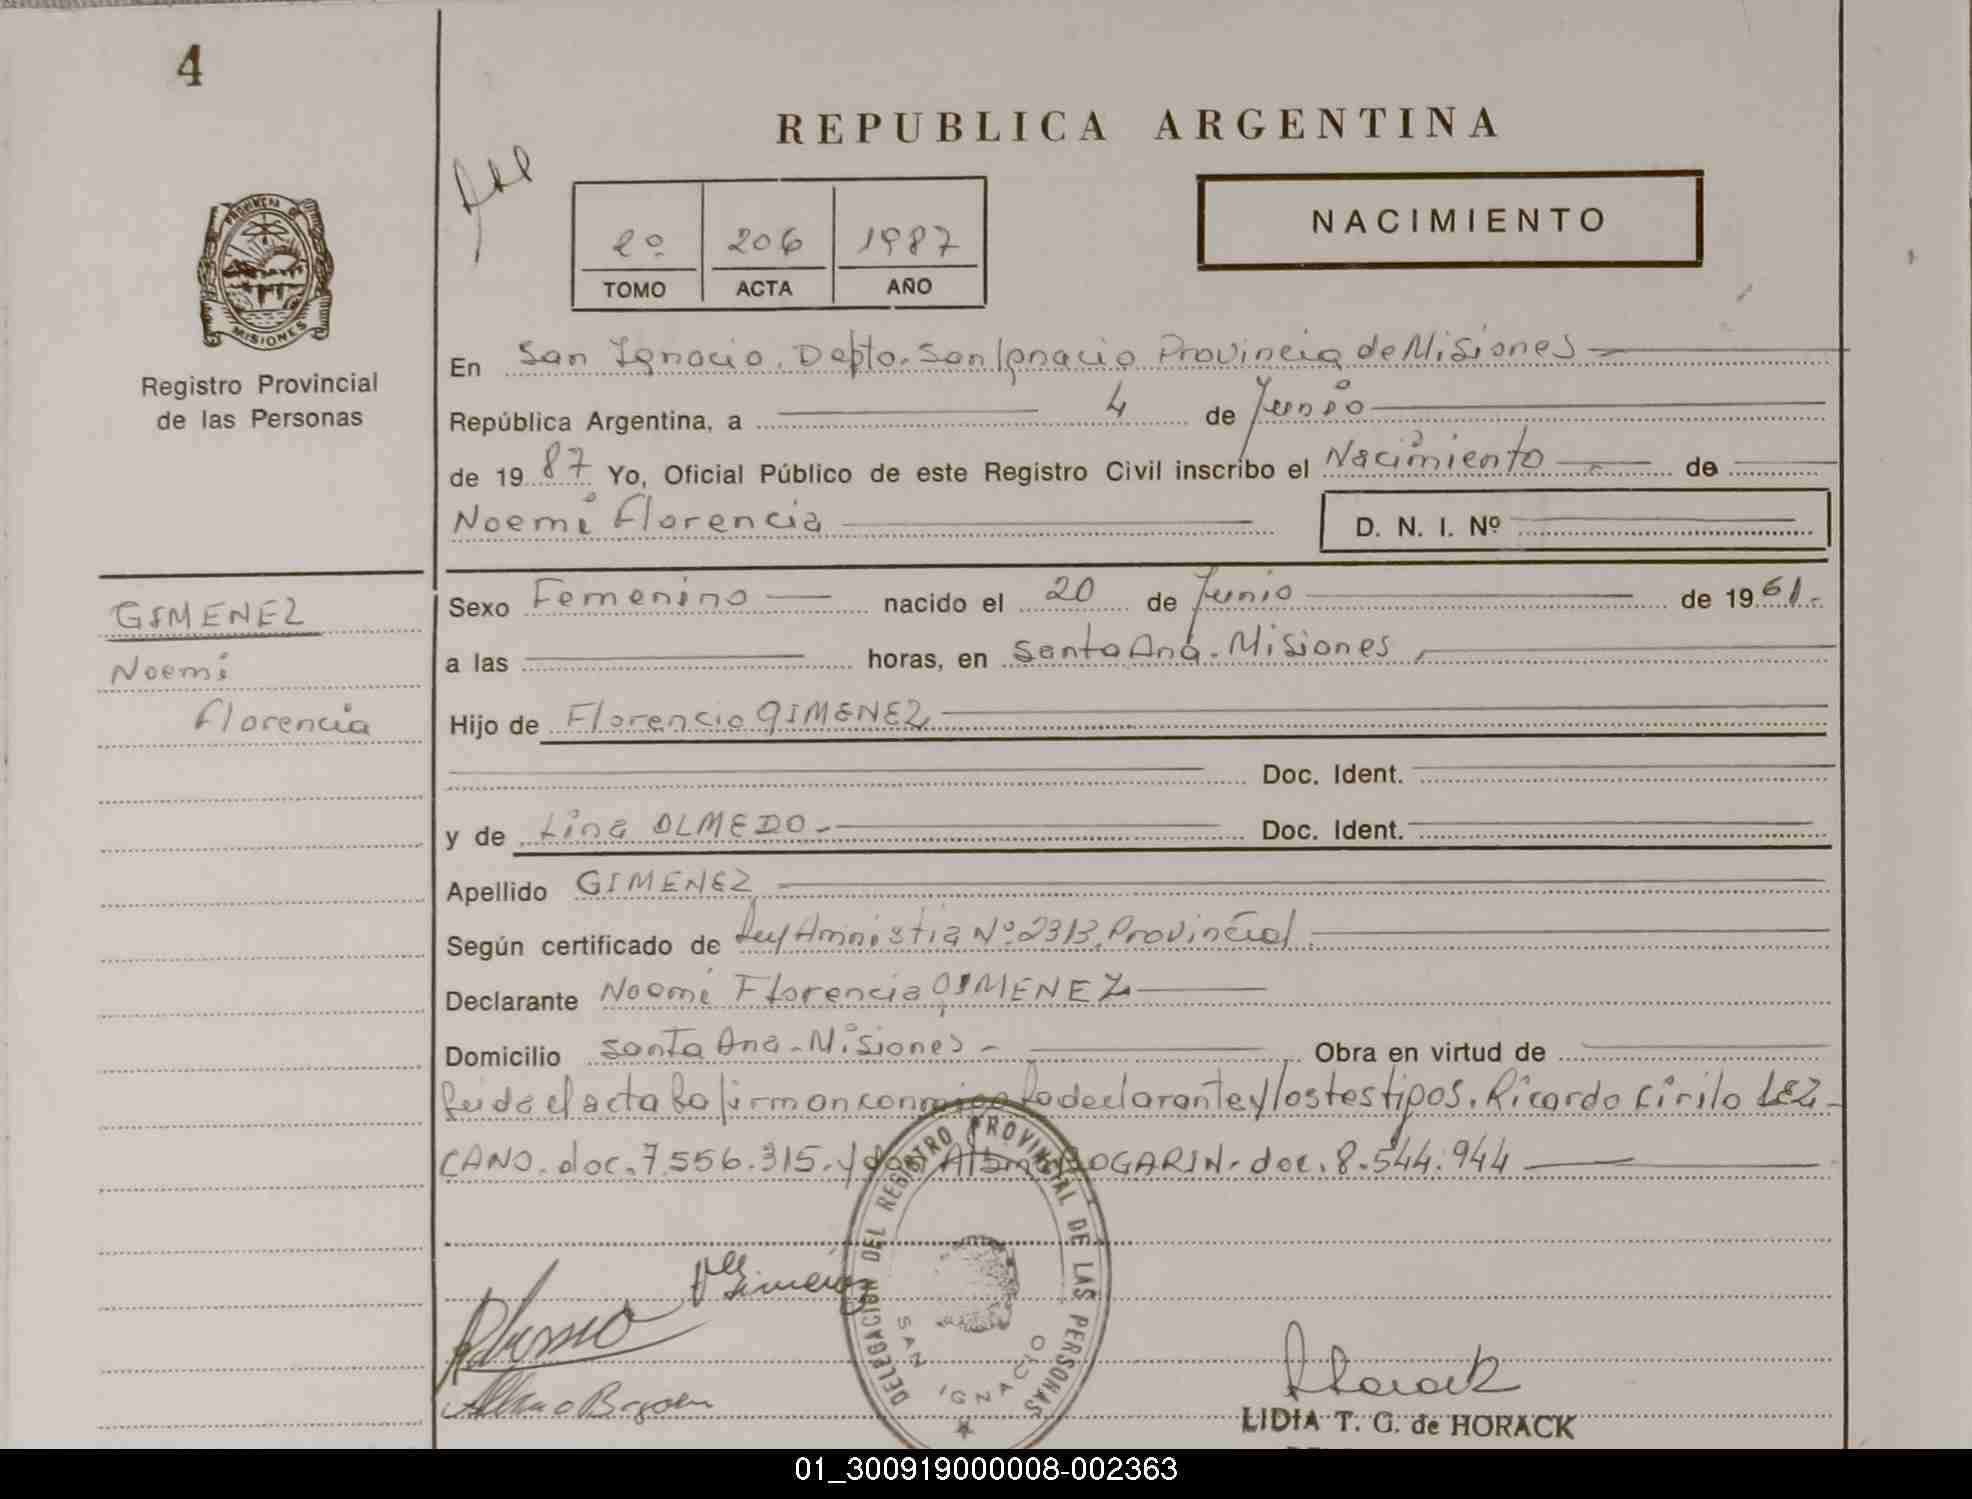 4
REPUBLICA ARGENTINA
PROVINCIA DE
MISIONES
Registro Provincial
de las Personas
2º 206 1987
TOMO ACTA AÑO
NACIMIENTO
En San Ignacio. Depto. San Ignacio Provincia de Misiones
República Argentina, a 4 de Junio
de 1987 Yo, Oficial Público de este Registro Civil inscribo el Nacimiento de
Noemi Florencia D. N. I. Nº
GIMENEZ
Noemi
Florencia
Sexo Femenino nacido el 20 de Junio de 1961.-
a las horas, en Santa Ana. Misiones
Hijo de Florencio GIMENEZ
Doc. Ident.
y de Lina OLMEDO.- Doc. Ident.
Apellido GIMENEZ
Según certificado de Ley Amnistia Nº 2313. Provincial
Declarante Noemi Florencia GIMENEZ
Domicilio Santa Ana - Misiones - Obra en virtud de
Leida el acta la firman conmigo la declarante y los testigos. Ricardo Cirilo LEZ-
CANO. doc. 7.556.315. y don Albino BOGARIN. doc. 8.544.944
DELEGACION DEL REGISTRO PROVINCIAL DE LAS PERSONAS
SAN IGNACIO
Gimenez
Albino Bogarin
Horack
LIDIA T. G. de HORACK
01_300919000008-002363